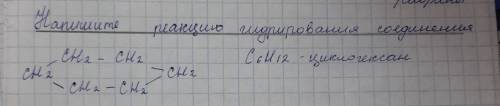 Напишите реакцию гидрирования соединения
CH2 - CH2
CH2 CH2 C6H12 - циклогексан
CH2 - CH2